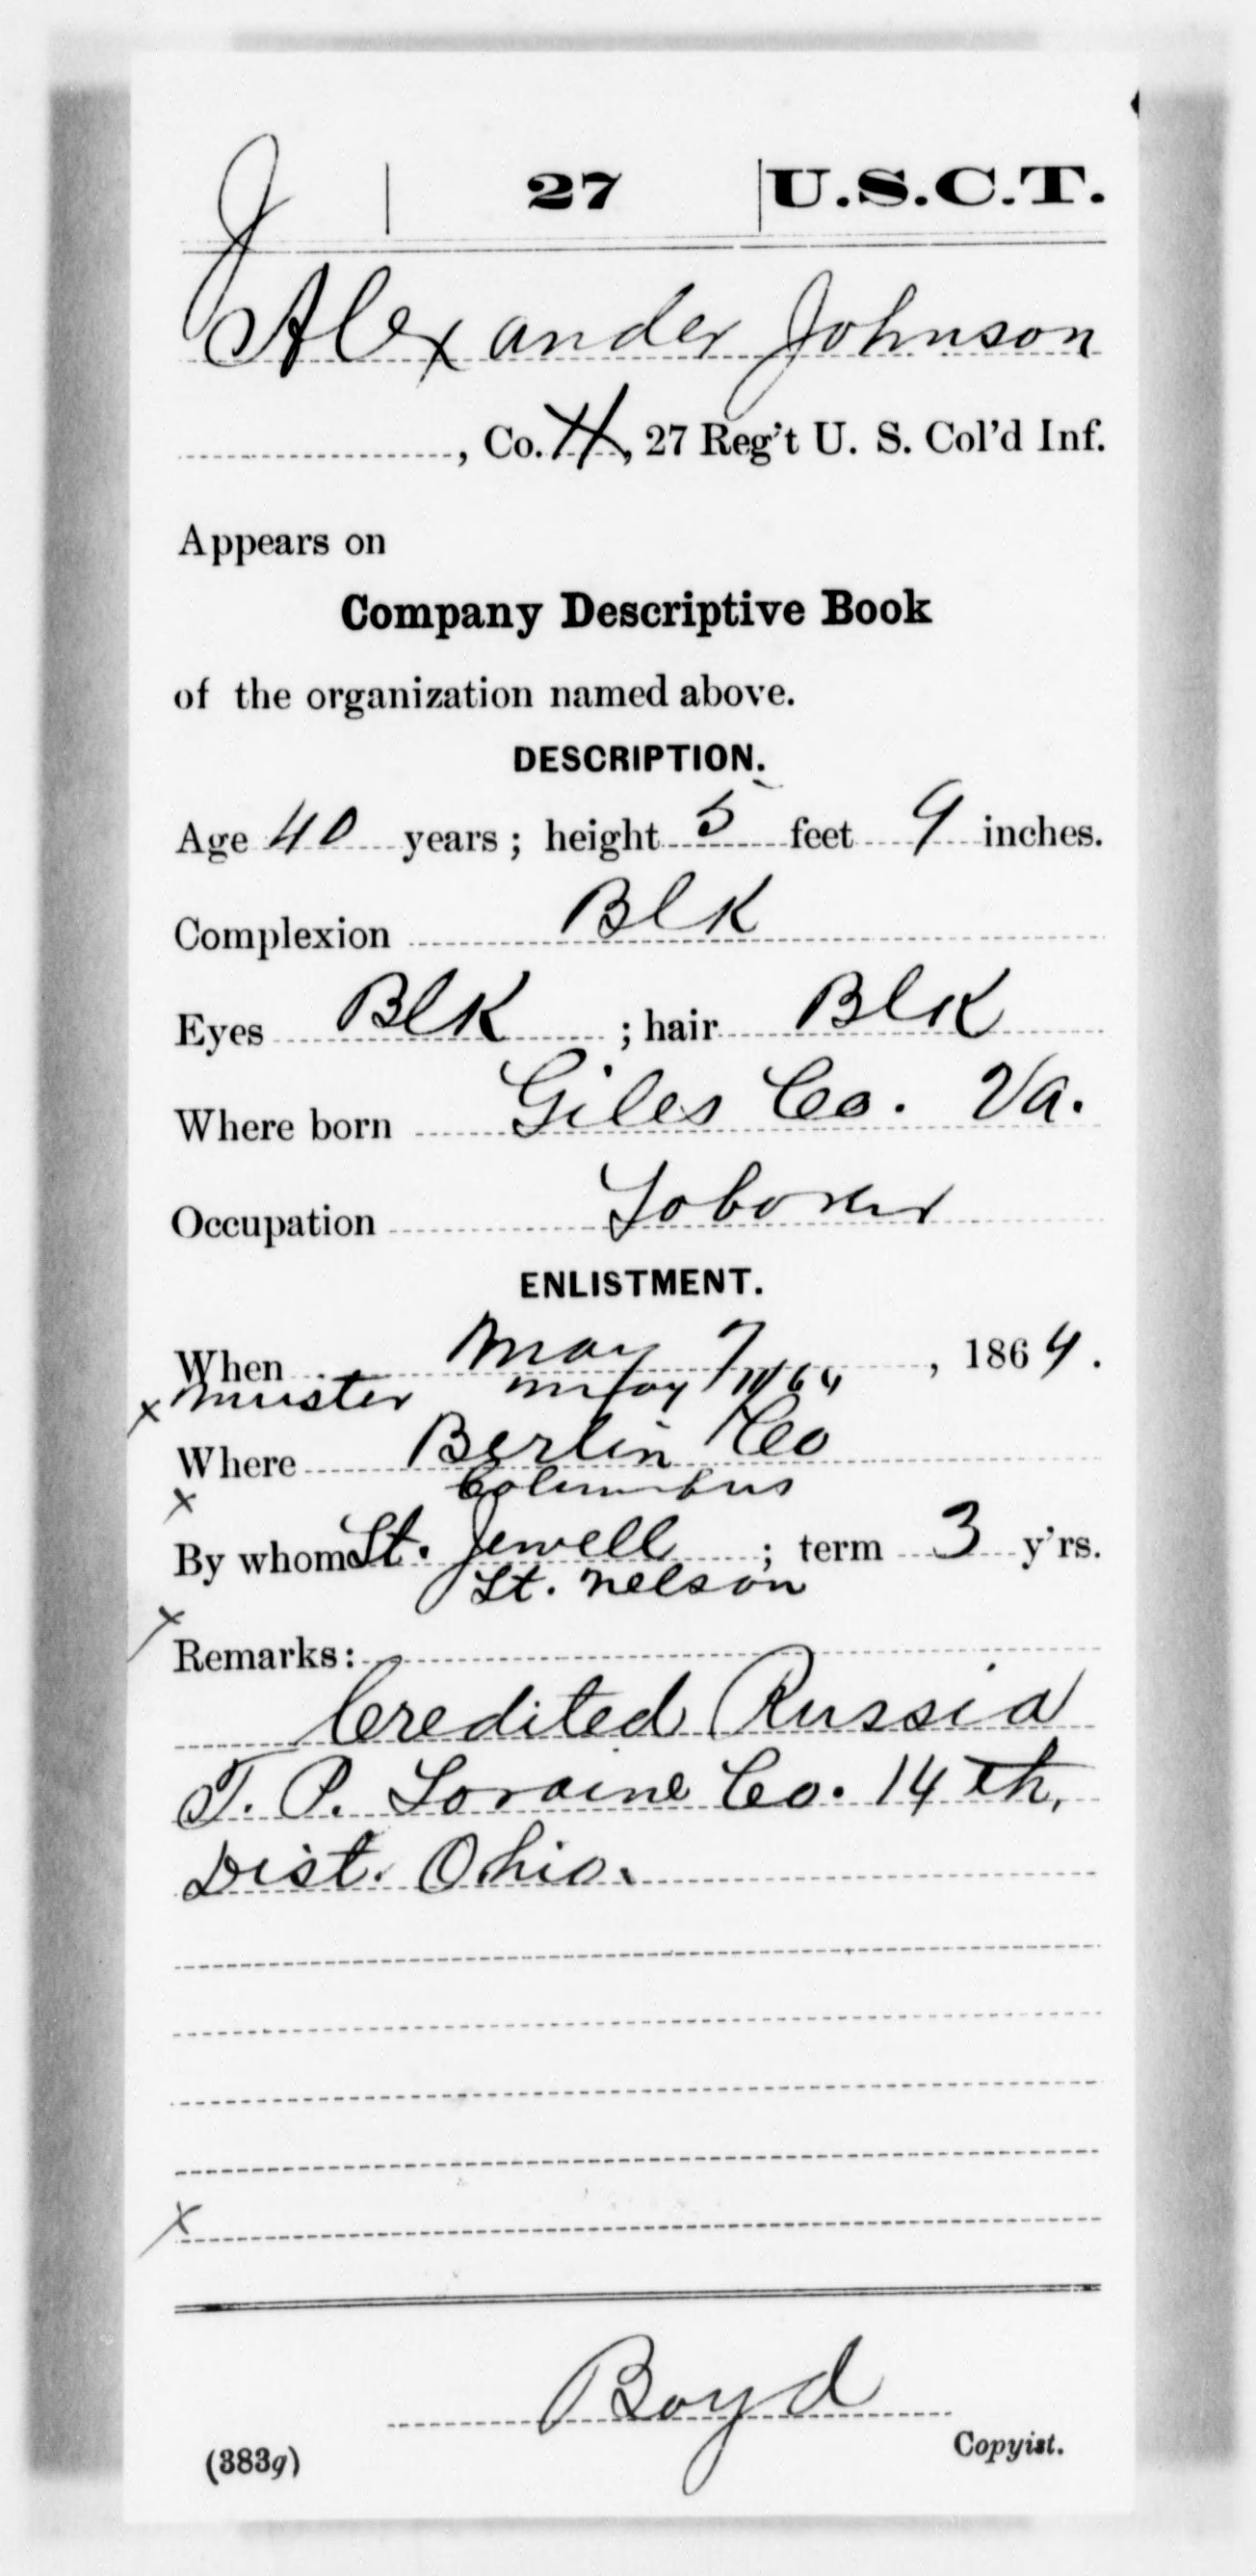 J | 27 | U.S.C.T.
Alexander Johnson
, Co. H, 27 Reg't U. S. Col'd Inf.
Appears on
Company Descriptive Book
of the organization named above.
DESCRIPTION.
Age 40 years; height 5 feet 9 inches.
Complexion Blk
Eyes Blk ; hair Blk
Where born Giles Co. Va.
Occupation Laborer
ENLISTMENT.
When May 7, 1864.
x muster May 11/64
Where Berlin Co
x Columbus
By whom Lt. Jewell ; term 3 y'rs.
Lt. Nelson
x
Remarks:
Credited Russia
T. P. Loraine Co. 14th,
Dist. Ohio.
x
Boyd
(383g) Copyist.